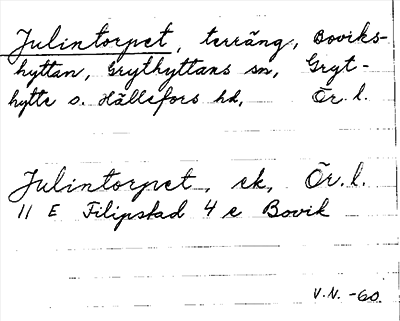 Julintorpet, terräng, Boviks-
hyttan, Grythyttans sn, Gryt-
hytte o. Hällefors hd, Ör. l.
Julintorpet, ek, Ör. l.
11 E Filipstad 4 e Bovik
V.N. -60.